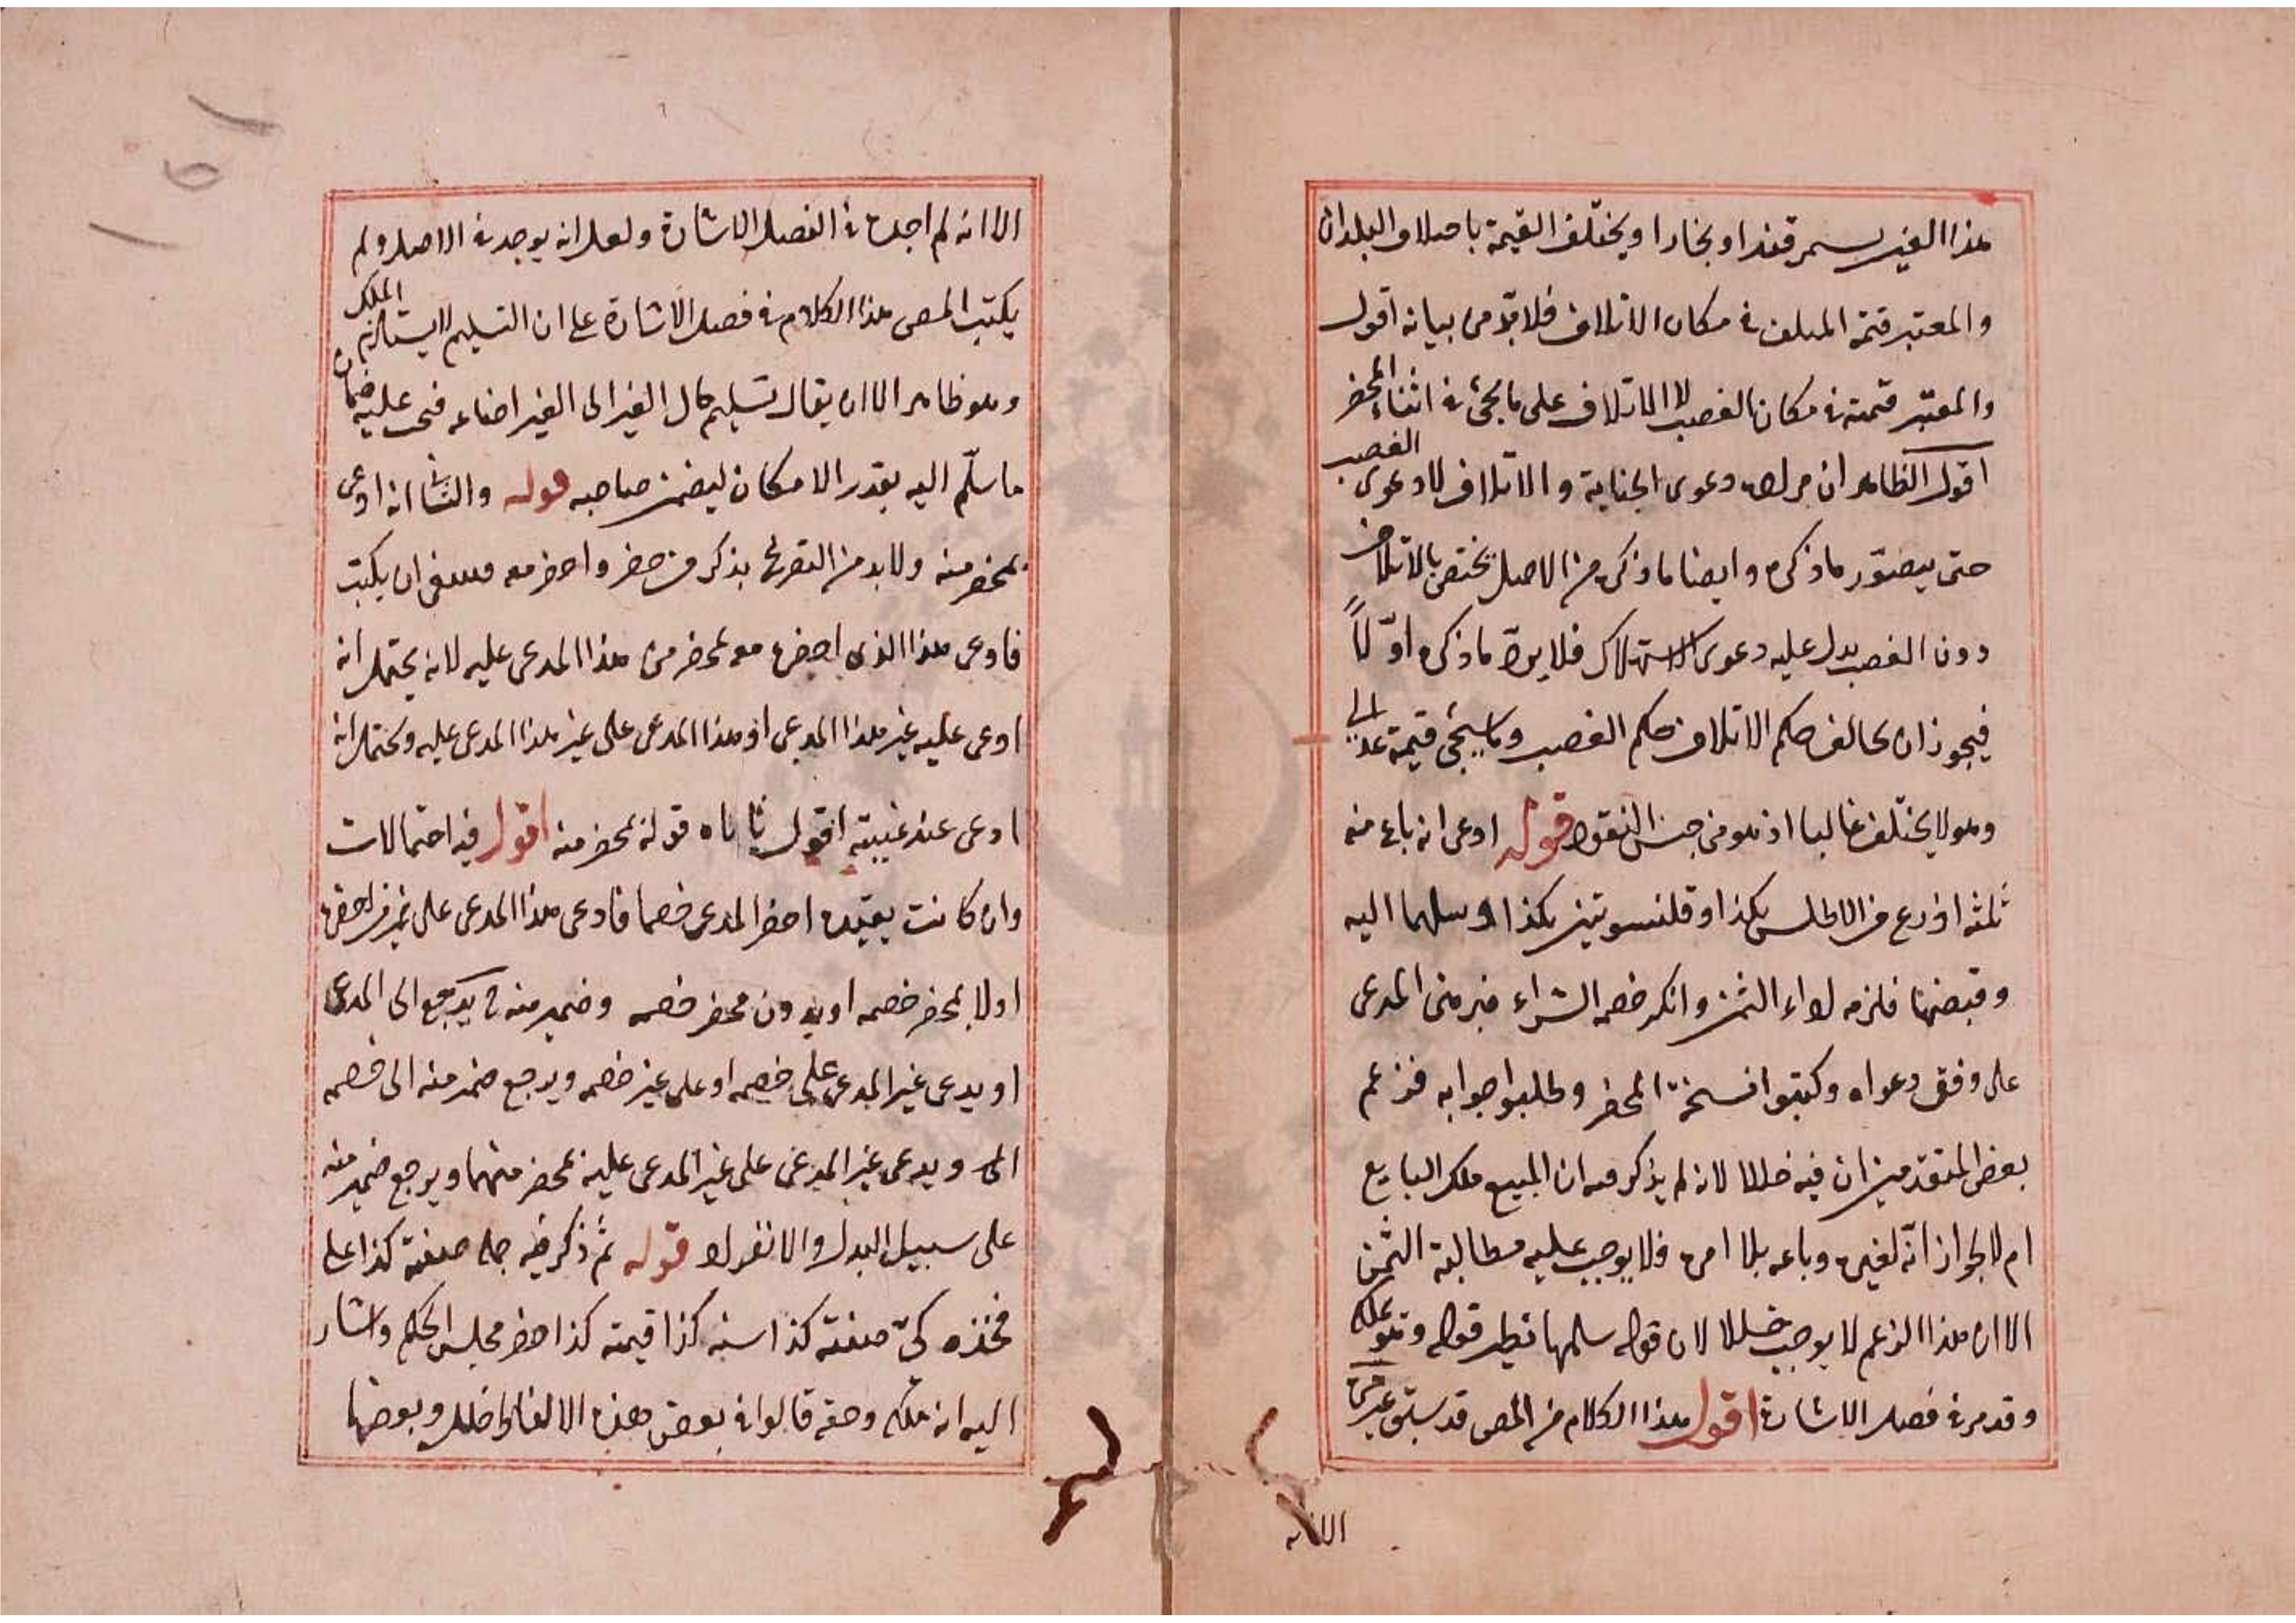 هذا الغير بسمرقند او بخارا ويختلف القيمة باختلاف البلدان
والمعتبر قيمة المتلف في مكان الاتلاف فلا بدّ من بيانه اقول
والمعتبر قيمته في مكان الغصب لا الاتلاف على ما يجئ في اثناء المحضر
اقول الظاهر ان مراده دعوى الجناية والاتلاف لا دعوى الغصب
حتى يتصوّر ما ذكره وايضا ما ذكره من الاصل يختص بالاتلاف
دون الغصب يدل عليه دعوى الاستهلاك فلا يردّ ما ذكره اوّلاً
فيجوز ان يخالف حكم الاتلاف حكم الغصب وما سيجئ قيمة
وهو لا يختلف غالبا اذ هو من جنس النقود قوله ادعى انه باع منه
ثلثه اذرع من الاطلس بكذا وقلنسوتين بكذا وسلمها اليه
وقبضها فلزمه اداء الثمن وانكر خصمه الشراء فبرهن المدعى
على وفق دعواه وكتبوا نسخة المحضر وطلبوا جوابه فزعم
بعض المتقدمين ان فيه خللا لانه لم يذكر فيه ان المبيع ملك البايع
ام لا لجواز انّه لغيره وباعه بلا امره فلا يوجب عليه مطالبة الثمن
الا ان هذا الزعم لا يوجب خللا لان قوله سلمها نظير قوله وهو ملكه
وقد مر في فصل الاشارة اقول هذا الكلام من المص قد سبق غير مرة
الا انه
الا انه لم اجده في الفصل الاشارة ولعل انه يوجد في الاصل ولم
يكتب المص هذا الكلام في فصل الاشارة على ان التسليم لا يستلزم الملك
وهو ظاهر الا ان يقال تسليم مال الغير الى الغير اضاعه فيجب عليه ضمان
ما سلّم اليه بقدر الامكان ليضمن صاحبه قوله والثانى انه ادعى
بمحضر منه ولا بد من التصريح بذكر من حضر واحضر معه فينبغى ان يكتب
فادعى هذا الذى احضره معه بمحضر من هذا المدعى عليه لانه يحتمل انه
ادعى عليه غير هذا المدعى او هذا المدعى على غير هذا المدعى عليه ويحتمل انه
ادعى عند غيبته اقول قوله بمحضر منه اقول فيه احتمالات
وان كانت بعيده احضر المدعى خصما فادعى هذا المدعى على غير من احضره
اولا بمحضر خصمه او بدون محضر خصمه وضمير منه ح يرجع الى المدعى
او يدعى غير المدعى على خصمه او على غير خصمه ويرجع ضمير منه الى خصمه
ويدعى غير المدعى على غير المدعى عليه بمحضر منهما ويرجع ضمير منه
على سبيل البدل والانفراد قوله ثم ذكر فيه جمل صفته كذا على
فخذه كىّ صفته كذا سنه كذا قيمته كذا احضر مجلس الحكم واشار
اليه انه ملكه وحقه قالوا في بعض هذه الالفاظ خلل وبعضها